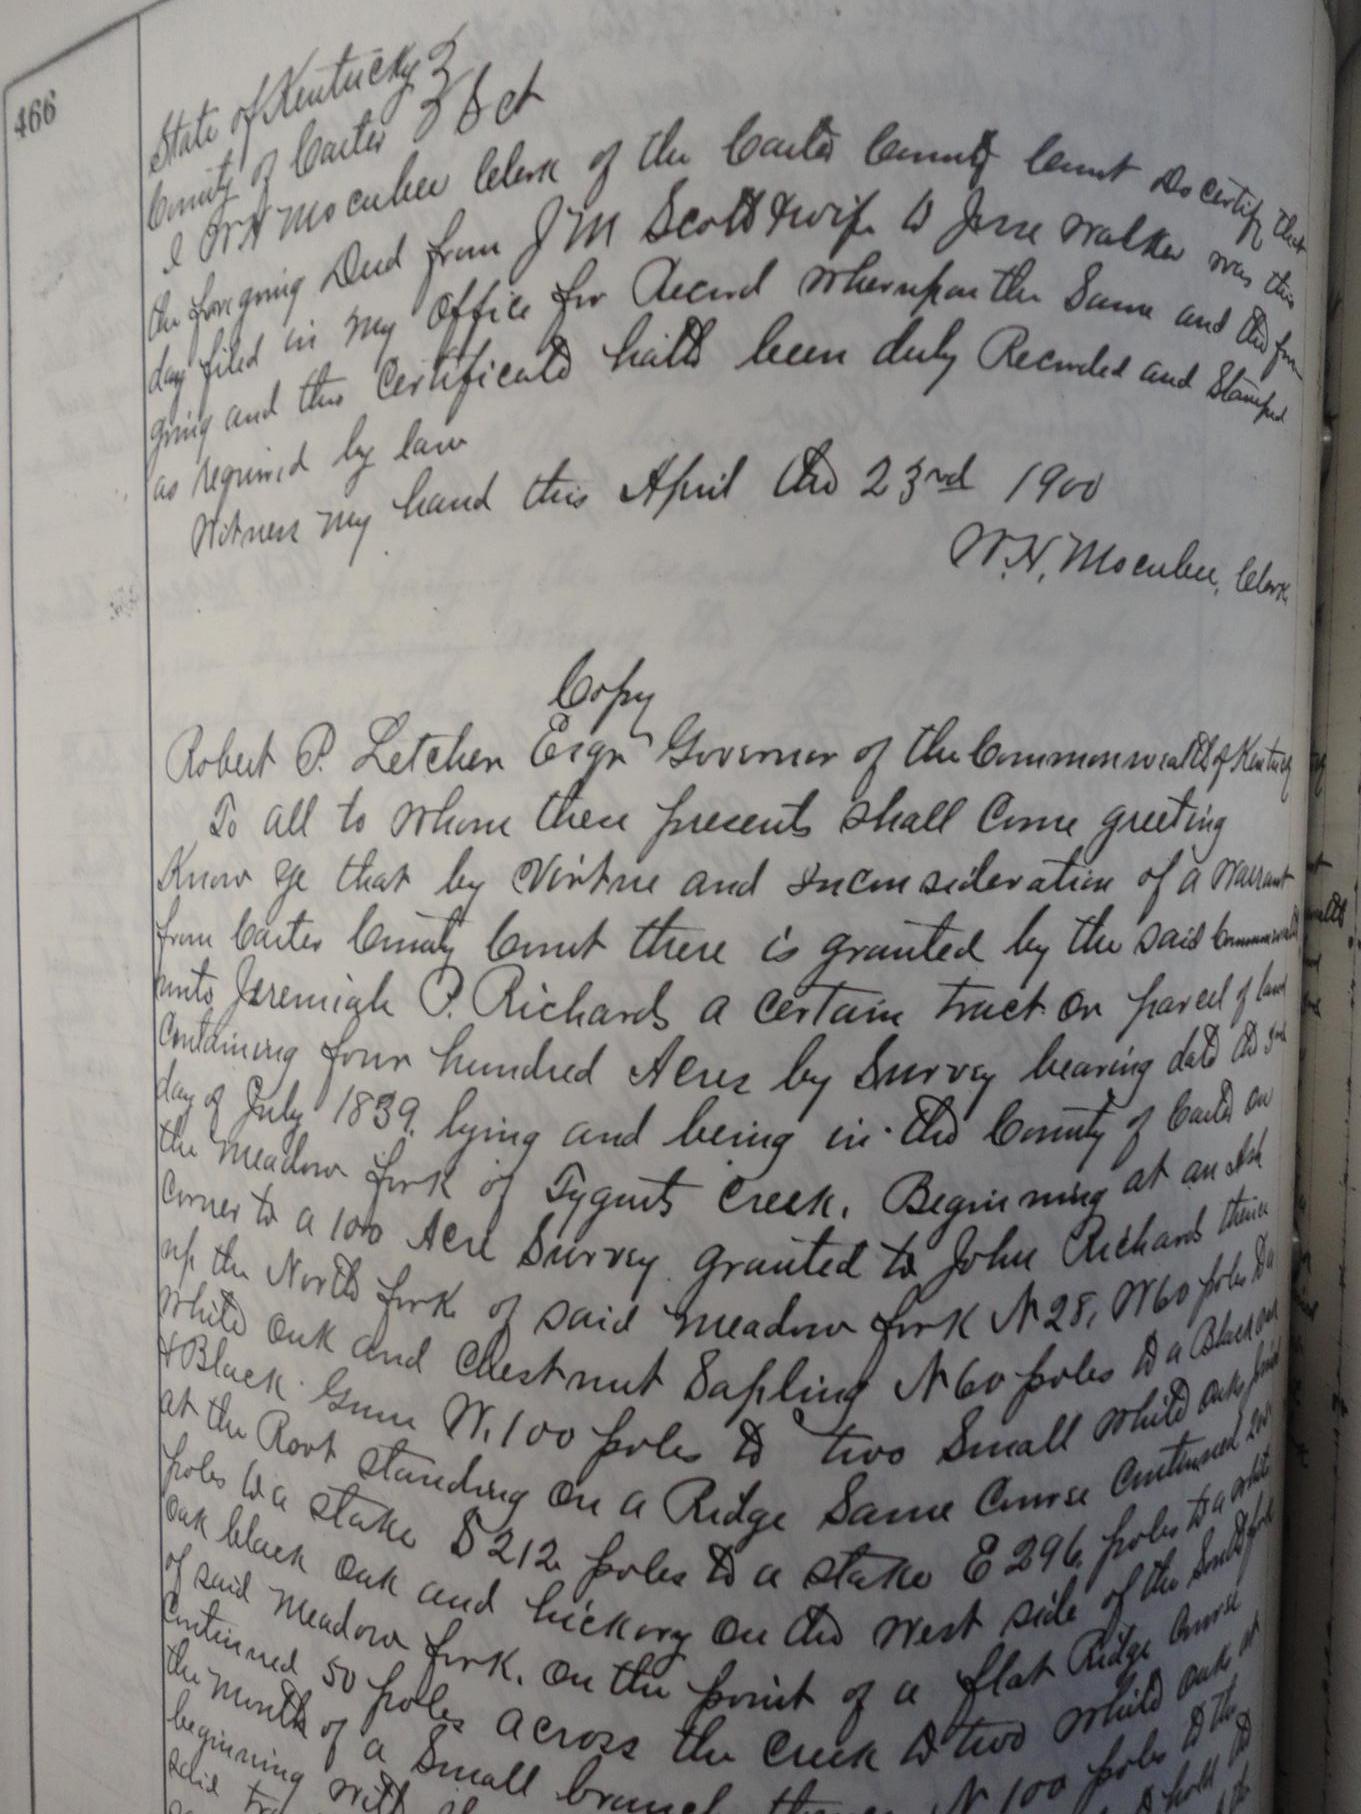 466
State of Kentucky }
County of Carter } Sct
I W. H. Mocabee Clerk of the Carter County Court do certify that
the foregoing Deed from J M Scott & wife to Jesse Walker was this
day filed in my Office for Record whereupon the Same and the fore
going and this Certificate hath been duly Recorded and Stamped
as required by law
Witness my hand this April the 23rd 1900
W. H. Mocabee, Clerk
Copy
Robert P. Letcher Esqr Governor of the Commonwealth of Kentucky
To all to whom these presents shall Come greeting
Know ye that by Virtue and inconsideration of a Warrant
from Carter County Court there is granted by the said Commonwealth
unto Jeremiah P. Richards a certain tract or parcel of land
Containing four hundred Acres by Survey bearing date the 3rd
day of July 1839. lying and being in the County of Carter on
the meadow fork of Tygarts Creek. Beginning at an Ash
Corner to a 100 Acre Survey granted to John Richards thence
up the North fork of said meadow fork N 28, W 60 poles to a
White Oak and Chestnut Sapling N 60 poles to a Black Oak
& Black Gum W. 100 poles to two Small white oaks
at the Root standing on a Ridge Same Course Continued
poles to a stake S 212 poles to a stake E 296 poles to a white
Oak black Oak and hickory on the West side of the South fork
of said meadow fork. on the point of a flat Ridge Course
Continued 50 poles across the creek to two white oaks at
the mouth of a Small branch thence N 100 poles to the
beginning with hold to
said